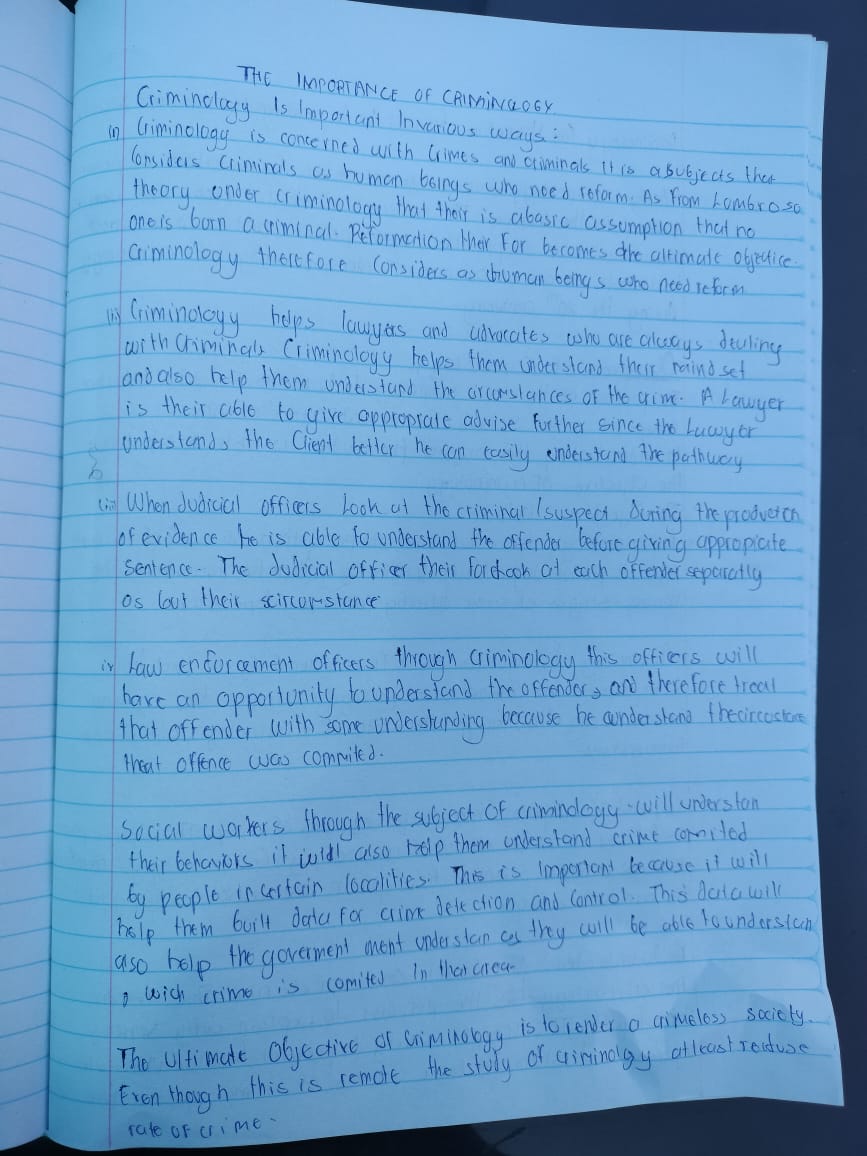 THE IMPORTANCE OF CRIMINOLOGY
Criminology Is Important Invarious ways:
(i) Criminology is concerned with Crimes and criminals it is a Subjects that
Considers Criminals as human beings who need reform. As from Lombroso
theory onder criminology that their is abasic assumption that no
oneis born a criminal. Reformation their For becomes the altimate objective.
Criminology therefore Considers as human beings who need reform
ii) Criminology helps lawyers and advocates who are always deuling
with Criminals Criminology helps them understand their mindset
and also help them understand the circumstances of the crime. A Lawyer
is their able to give appropriate advise Further since the Lawyer
understands the Client better he can easily understand the pathway
(iii) When Judicial officers Look at the criminal /suspect During the production
of evidence he is able to understand the offender before giving appropiate
Sentence. The Judicial officer their for look at each offender separatly
as but their scircomstance
iv Law enforcement officers through Criminology this officers will
have an opportunity to understand the offenders and therefore treat
that offender with some understanding because he understand thecircostance
that offence was commited.
Social workers through the subject of criminology will understan
their behaviors it will also help them understand crime comited
by people in certain localities. This is Important because it will
help them built data for crime detection and Control. This data will
also help the goverment ment understan as they will be able to understan
, wich crime is comited In that area-
The Ultimate Objective of Criminology is to render a crimeless society.
Even though this is remote the study of criminolgy atleast reiduse
rate of crime-